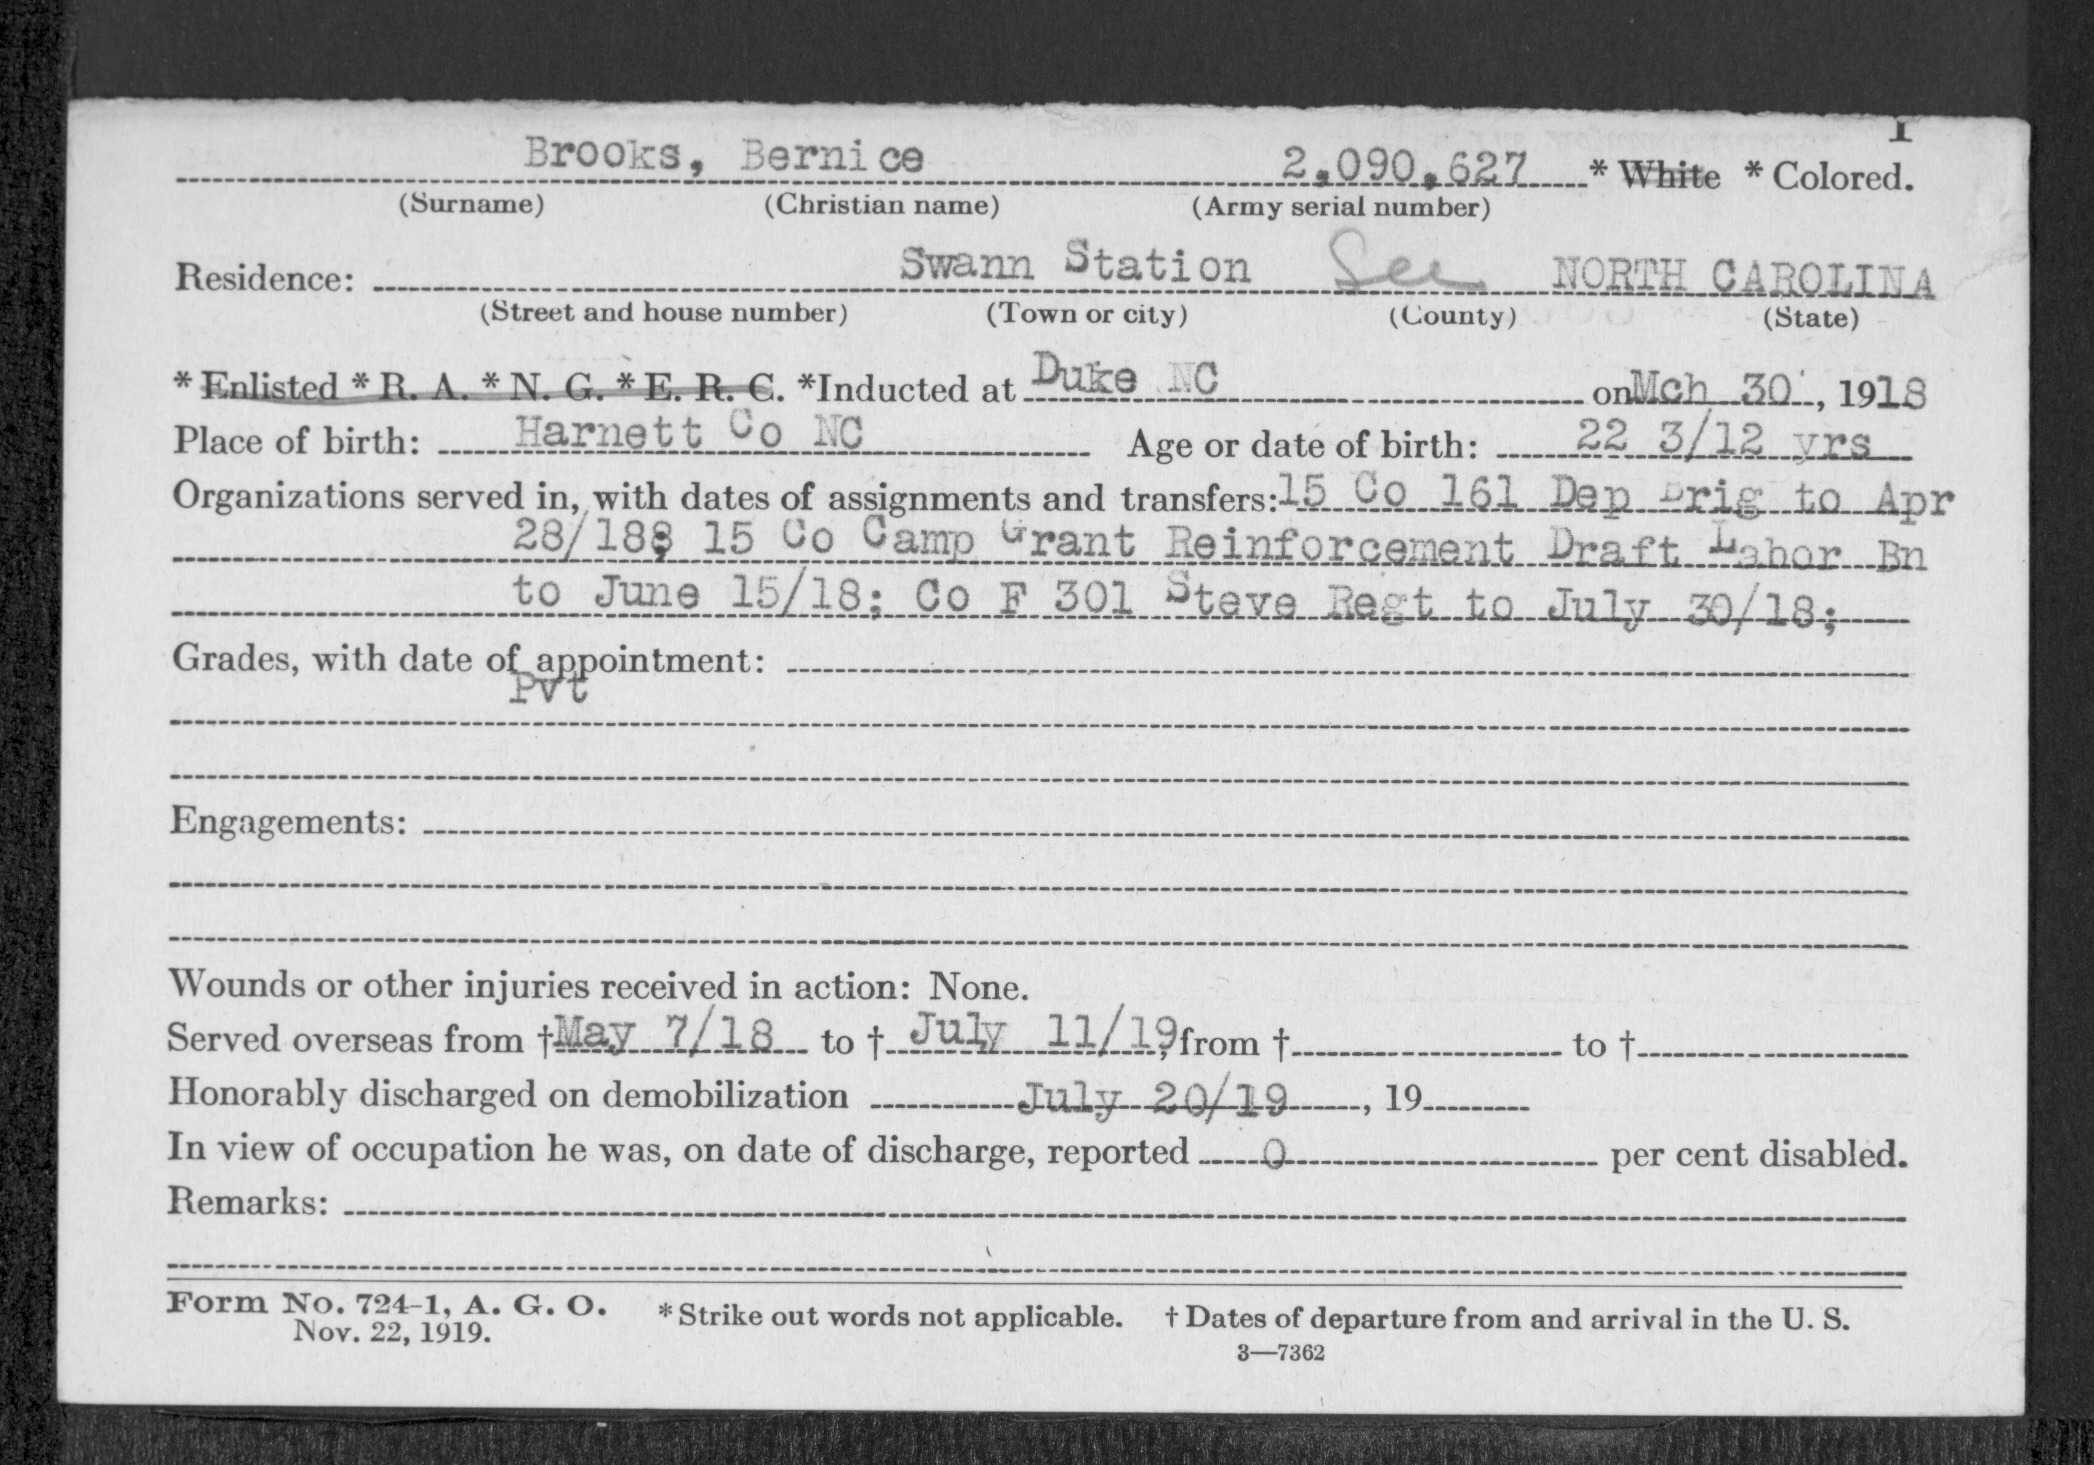 1
Brooks, Bernice 2,090,627 * White * Colored.
(Surname) (Christian name) (Army serial number)
Residence: Swann Station Lee NORTH CAROLINA
(Street and house number) (Town or city) (County) (State)
* Enlisted * R. A. * N. G. * E. R. C. *Inducted at Duke NC on Mch 30, 1918
Place of birth: Harnett Co NC Age or date of birth: 22 3/12 yrs
Organizations served in, with dates of assignments and transfers: 15 Co 161 Dep Brig to Apr
28/18; 15 Co Camp Grant Reinforcement Draft Labor Bn
to June 15/18; Co F 301 Steve Regt to July 30/18;
Grades, with date of appointment:
Pvt
Engagements:
Wounds or other injuries received in action: None.
Served overseas from † May 7/18 to † July 11/19, from † to †
Honorably discharged on demobilization July 20/19, 19
In view of occupation he was, on date of discharge, reported 0 per cent disabled.
Remarks:
Form No. 724-1, A. G. O. * Strike out words not applicable. † Dates of departure from and arrival in the U. S.
Nov. 22, 1919.
3—7362